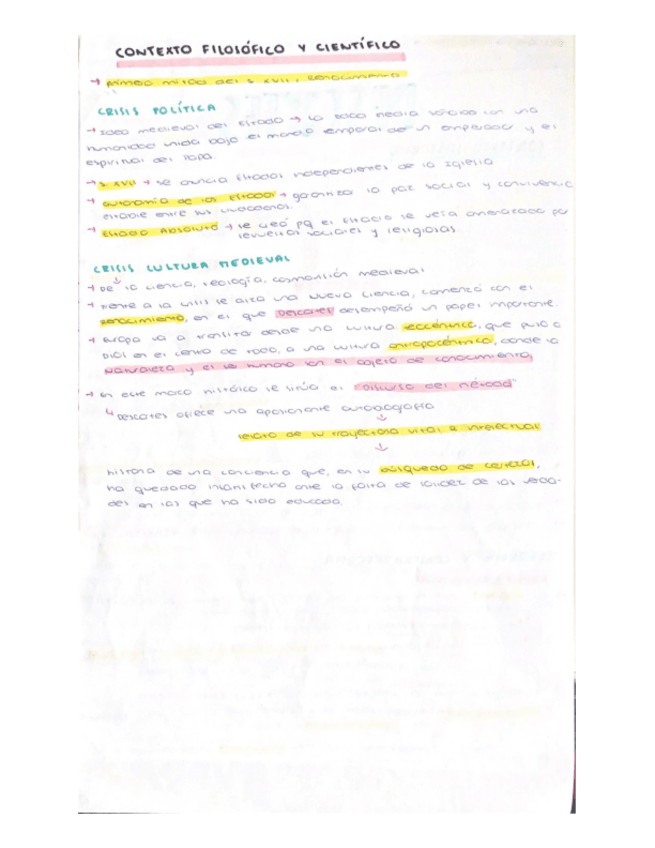 CONTEXTO FILOSÓFICO Y CIENTÍFICO
→ primera mitad del s. XVII, Renacimiento
CRISIS POLÍTICA
→ Idea medieval del Estado → La edad media soñaba con una
humanidad unida bajo el mando temporal de un emperador y el
espiritual del Papa.
→ s. XVII → se Estados independientes de la Iglesia
→ autonomía de los Estados → garantizar la paz social y convivencia
estable entre sus ciudadanos.
→ Estado Absoluto → se creó pq el Estado se veía amenazado por
revueltas sociales y religiosas.
CRISIS CULTURA MEDIEVAL
→ De la ciencia, teología, cosmovisión medieval
→ Frente a la crisis se alza una nueva ciencia, comenzó con el
Renacimiento, en el que Descartes desempeñó un papel importante.
→ Europa va a transitar desde una cultura, que pone a
Dios en el centro de todo, a una cultura antropocéntrica, donde la
naturaleza y el ser humano son el objeto de conocimiento,
→ En este marco histórico se sitúa el "Discurso del Método"
↳ Descartes ofrece una apasionante autobiografía
↓
relato de su trayectoria vital e intelectual
↓
historia de una conciencia que, en su búsqueda de certezas,
ha quedado insatisfecha ante la falta de solidez de las verda-
des en las que ha sido educada.